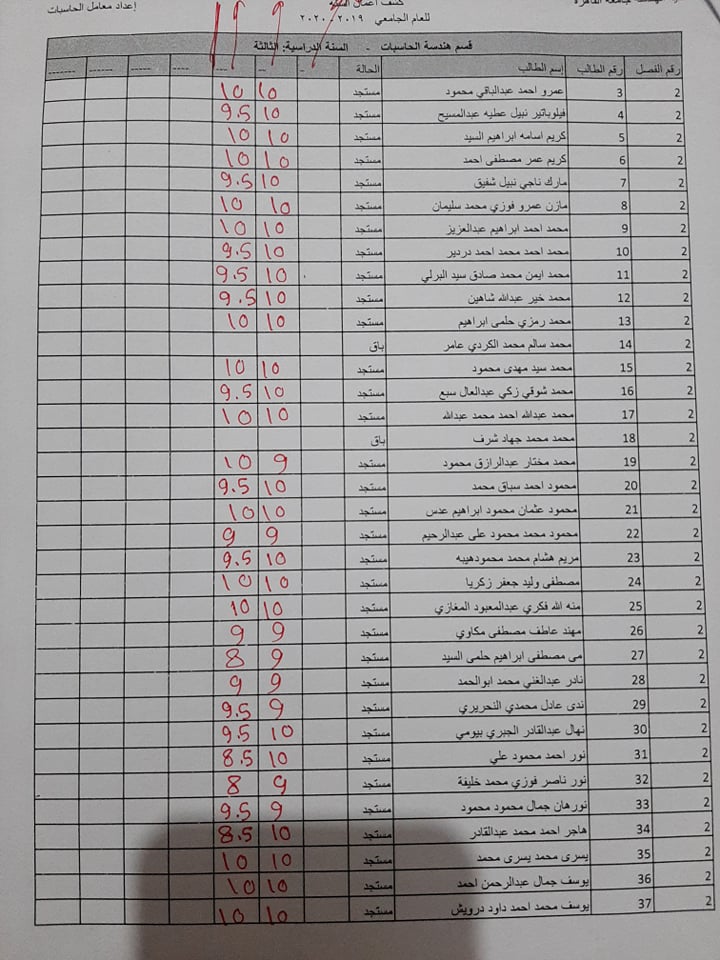 إعداد معامل الحاسبات
كشف أعمال السنة
للعام الجامعي ٢٠١٩ - ٢٠٢٠
قسم هندسة الحاسبات - السنة الدراسية: الثالثة
رقم الفصل رقم الطالب إسم الطالب الحالة
2 3 عمرو احمد عبدالباقي محمود مستجد 10 10
2 4 فيلوباتير نبيل عطيه عبدالمسيح مستجد 10 9.5
2 5 كريم اسامه ابراهيم السيد مستجد 10 10
2 6 كريم عمر مصطفى احمد مستجد 10 10
2 7 مارك ناجي نبيل شفيق مستجد 10 9.5
2 8 مازن عمرو فوزي محمد سليمان مستجد 10 10
2 9 محمد احمد ابراهيم عبدالعزيز مستجد 10 10
2 10 محمد احمد محمد احمد دردير مستجد 10 9.5
2 11 محمد ايمن محمد صادق سيد البرلي مستجد 10 9.5
2 12 محمد خير عبدالله شاهين مستجد 10 9.5
2 13 محمد رمزي حلمى ابراهيم مستجد 10 10
2 14 محمد سالم محمد الكردي عامر باق
2 15 محمد سيد مهدى محمود مستجد 10 10
2 16 محمد شوقي زكي عبدالعال سبع مستجد 10 9.5
2 17 محمد عبدالله احمد محمد عبدالله مستجد 10 10
2 18 محمد محمد جهاد شرف باق
2 19 محمد مختار عبدالرازق محمود مستجد 9 10
2 20 محمود احمد سباق محمد مستجد 10 9.5
2 21 محمود عثمان محمود ابراهيم عدس مستجد 10 10
2 22 محمود محمد محمود على عبدالرحيم مستجد 9 9
2 23 مريم هشام محمد محمودهيبه مستجد 10 9.5
2 24 مصطفى وليد جعفر زكريا مستجد 10 10
2 25 منه الله فكري عبدالمعبود المغازي مستجد 10 10
2 26 مهند عاطف مصطفى مكاوي مستجد 9 9
2 27 مى مصطفى ابراهيم حلمى السيد مستجد 9 8
2 28 نادر عبدالغني محمد ابوالحمد مستجد 9 9
2 29 ندى عادل محمدي النحريري مستجد 9 9.5
2 30 نهال عبدالقادر الجبري بيومي مستجد 10 9.5
2 31 نور احمد محمود علي مستجد 10 8.5
2 32 نور ناصر فوزي محمد خليفة مستجد 9 8
2 33 نورهان جمال محمود محمود مستجد 9 9.5
2 34 هاجر احمد محمد عبدالقادر مستجد 10 8.5
2 35 يسرى محمد يسرى محمد مستجد 10 10
2 36 يوسف جمال عبدالرحمن احمد مستجد 10 10
2 37 يوسف محمد احمد داود درويش مستجد 10 10